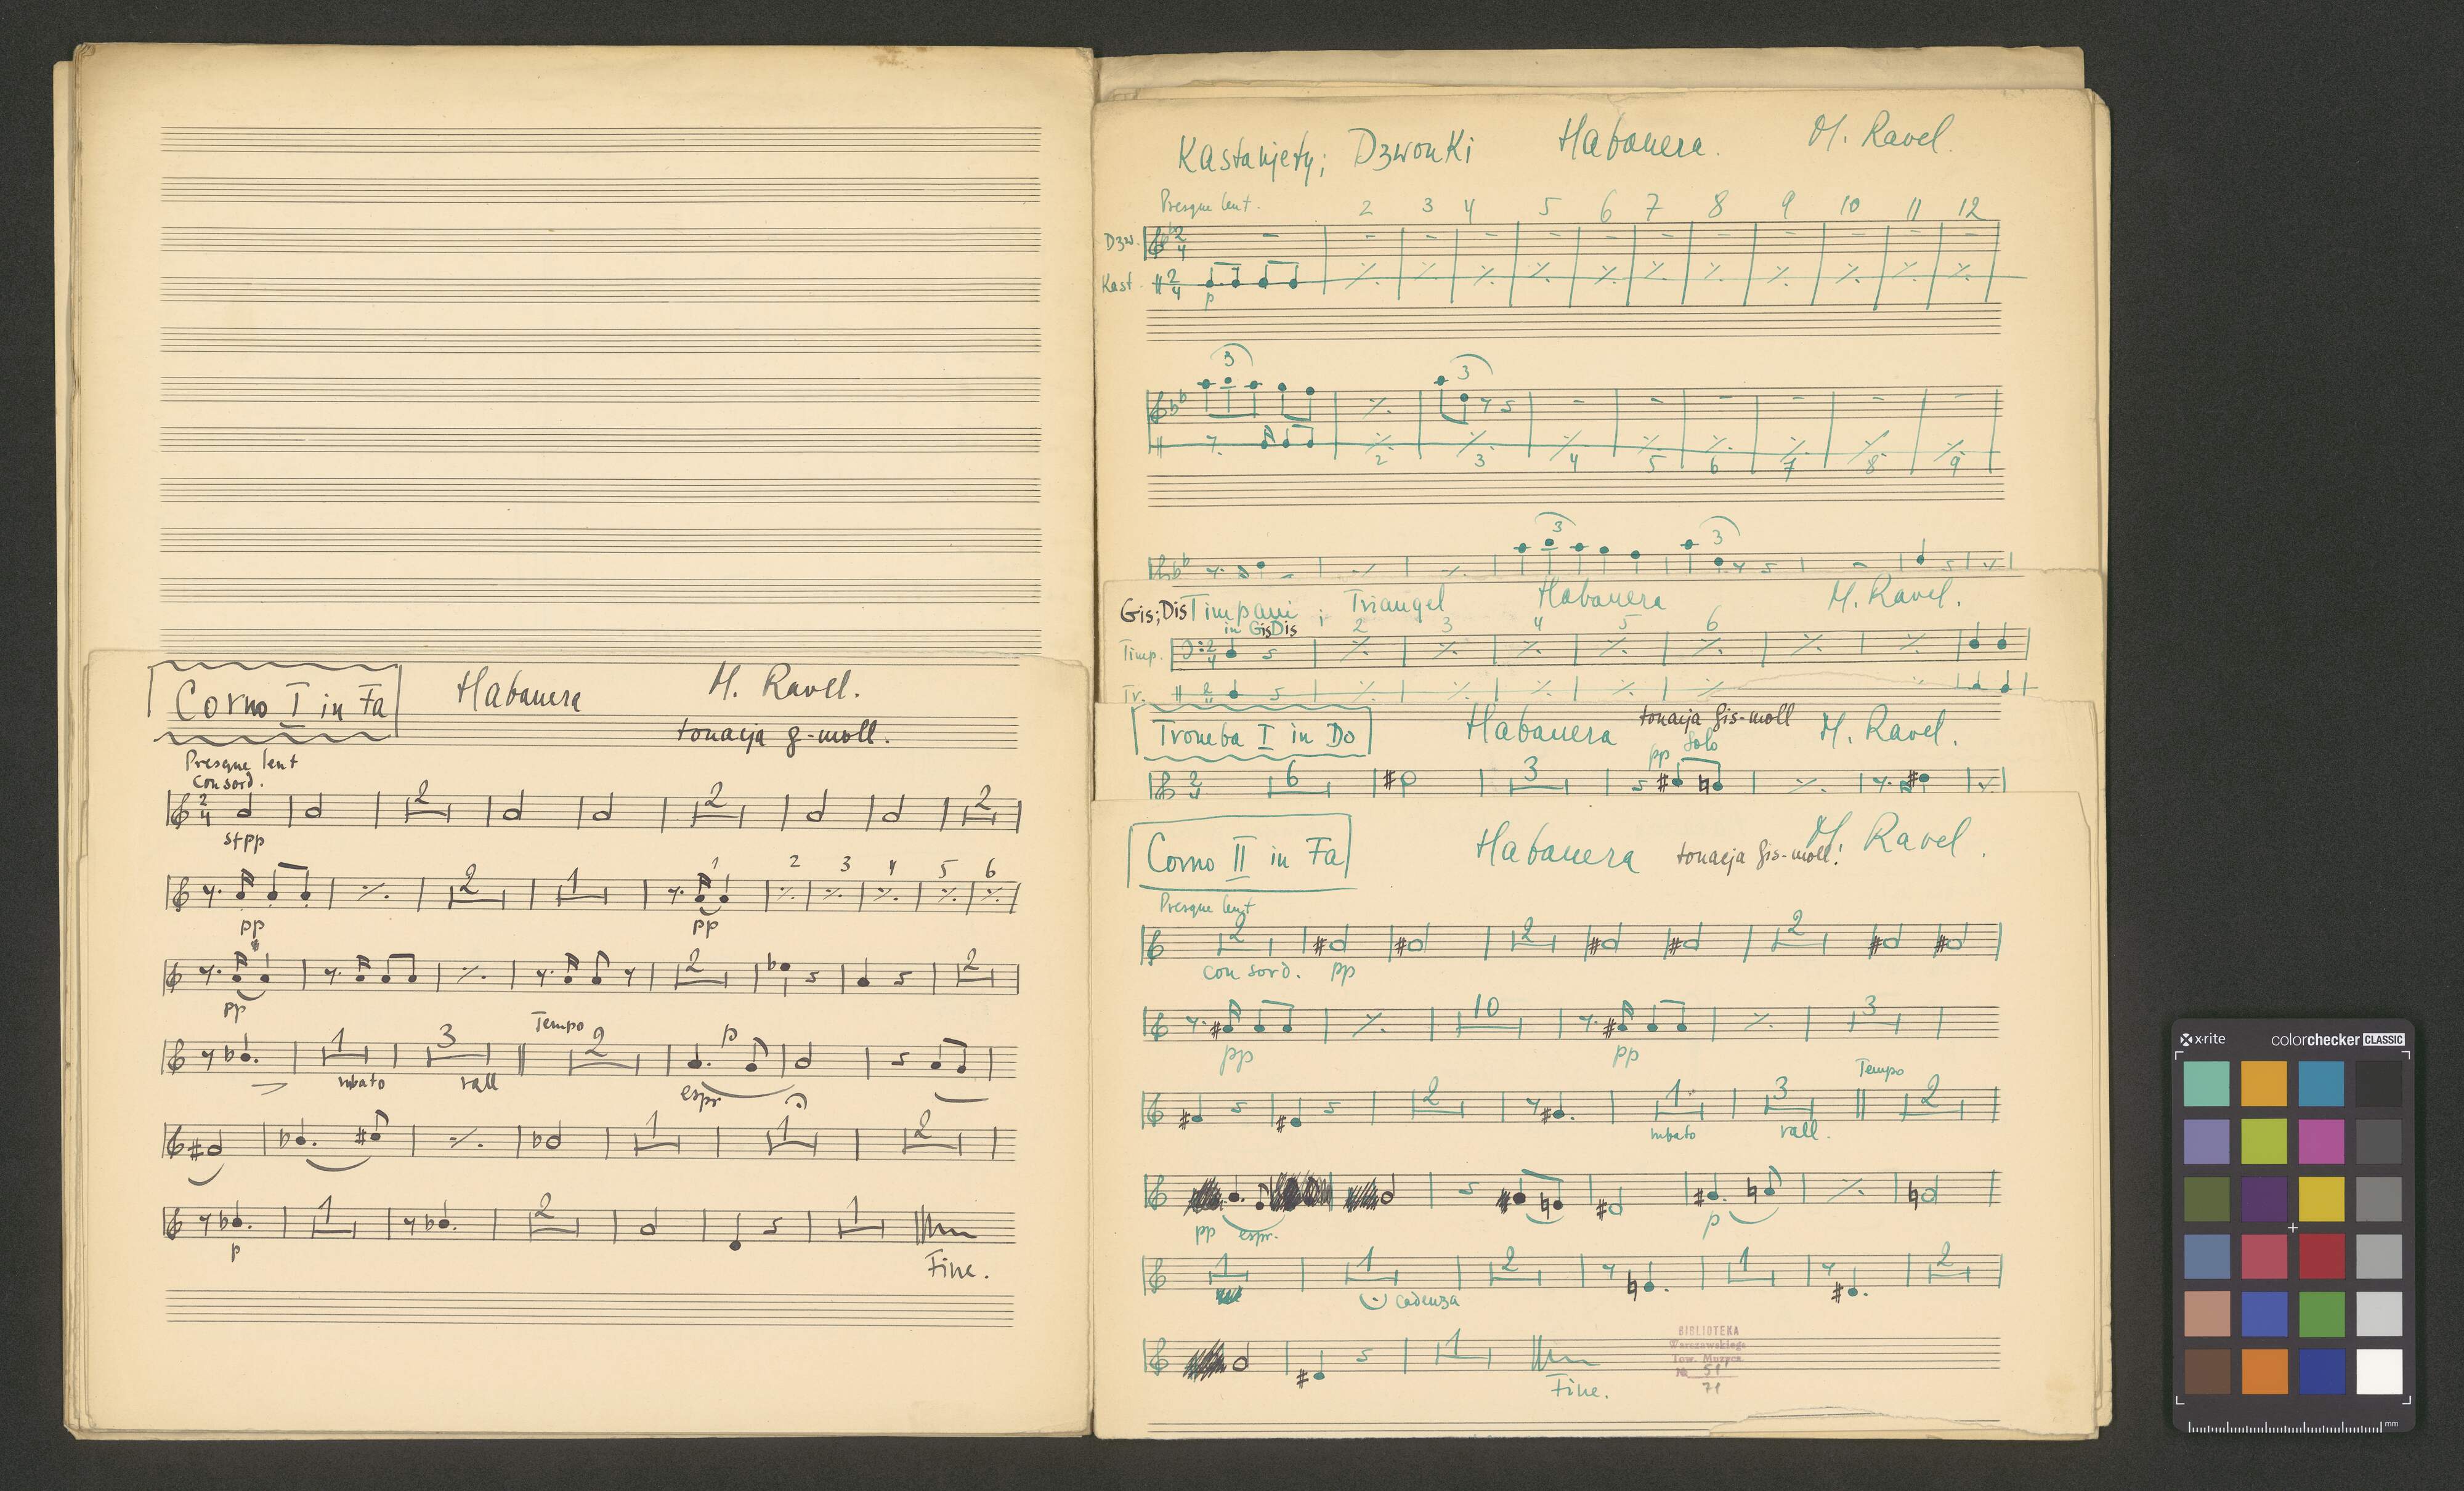 Corno I in Fa Habanera M. Ravel.
tonacja g-moll.
Presque lent
con sord.
2 4 2 2 2
st pp
2 1 1 2 3 4 5 6
pp pp
2 2
pp
Tempo p
1 3 2
rubato rall espr.
1 1 2
1 2 1
p Fine.
Kastanjety; Dzwonki Habanera. M. Ravel.
Presque lent. 2 3 4 5 6 7 8 9 10 11 12
Dzw. 2 4
Kast. 2 4
p
3 3
2 3 4 5 6 7 8 9
3 3
Gis; Dis Timpani; Triangel Habanera M. Ravel.
in Gis Dis 2 3 4 5 6
Timp. 2 4
Tr. 2 4
Tromba I in Do Habanera tonacja gis-moll M. Ravel.
pp Solo
2 4 6 3
Corno II in Fa Habanera tonacja gis-moll! M. Ravel.
Presque lent
2 2 2
con sord. pp
10 3
pp pp
Tempo
2 1 3 2
rubato rall.
pp espr. p
1 1 2 1 2
cadenza
1
Fine.
BIBLIOTEKA
Warszawskiego
Tow. Muzycz.
№ 51
71
x-rite colorchecker CLASSIC
mm